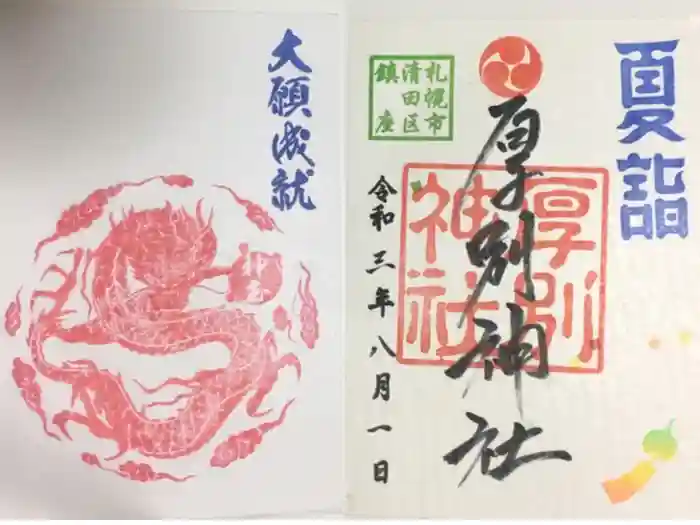 夏詣
札幌市
清田区
鎮座
厚別神社
厚別
神社
令和三年八月一日
大願成就